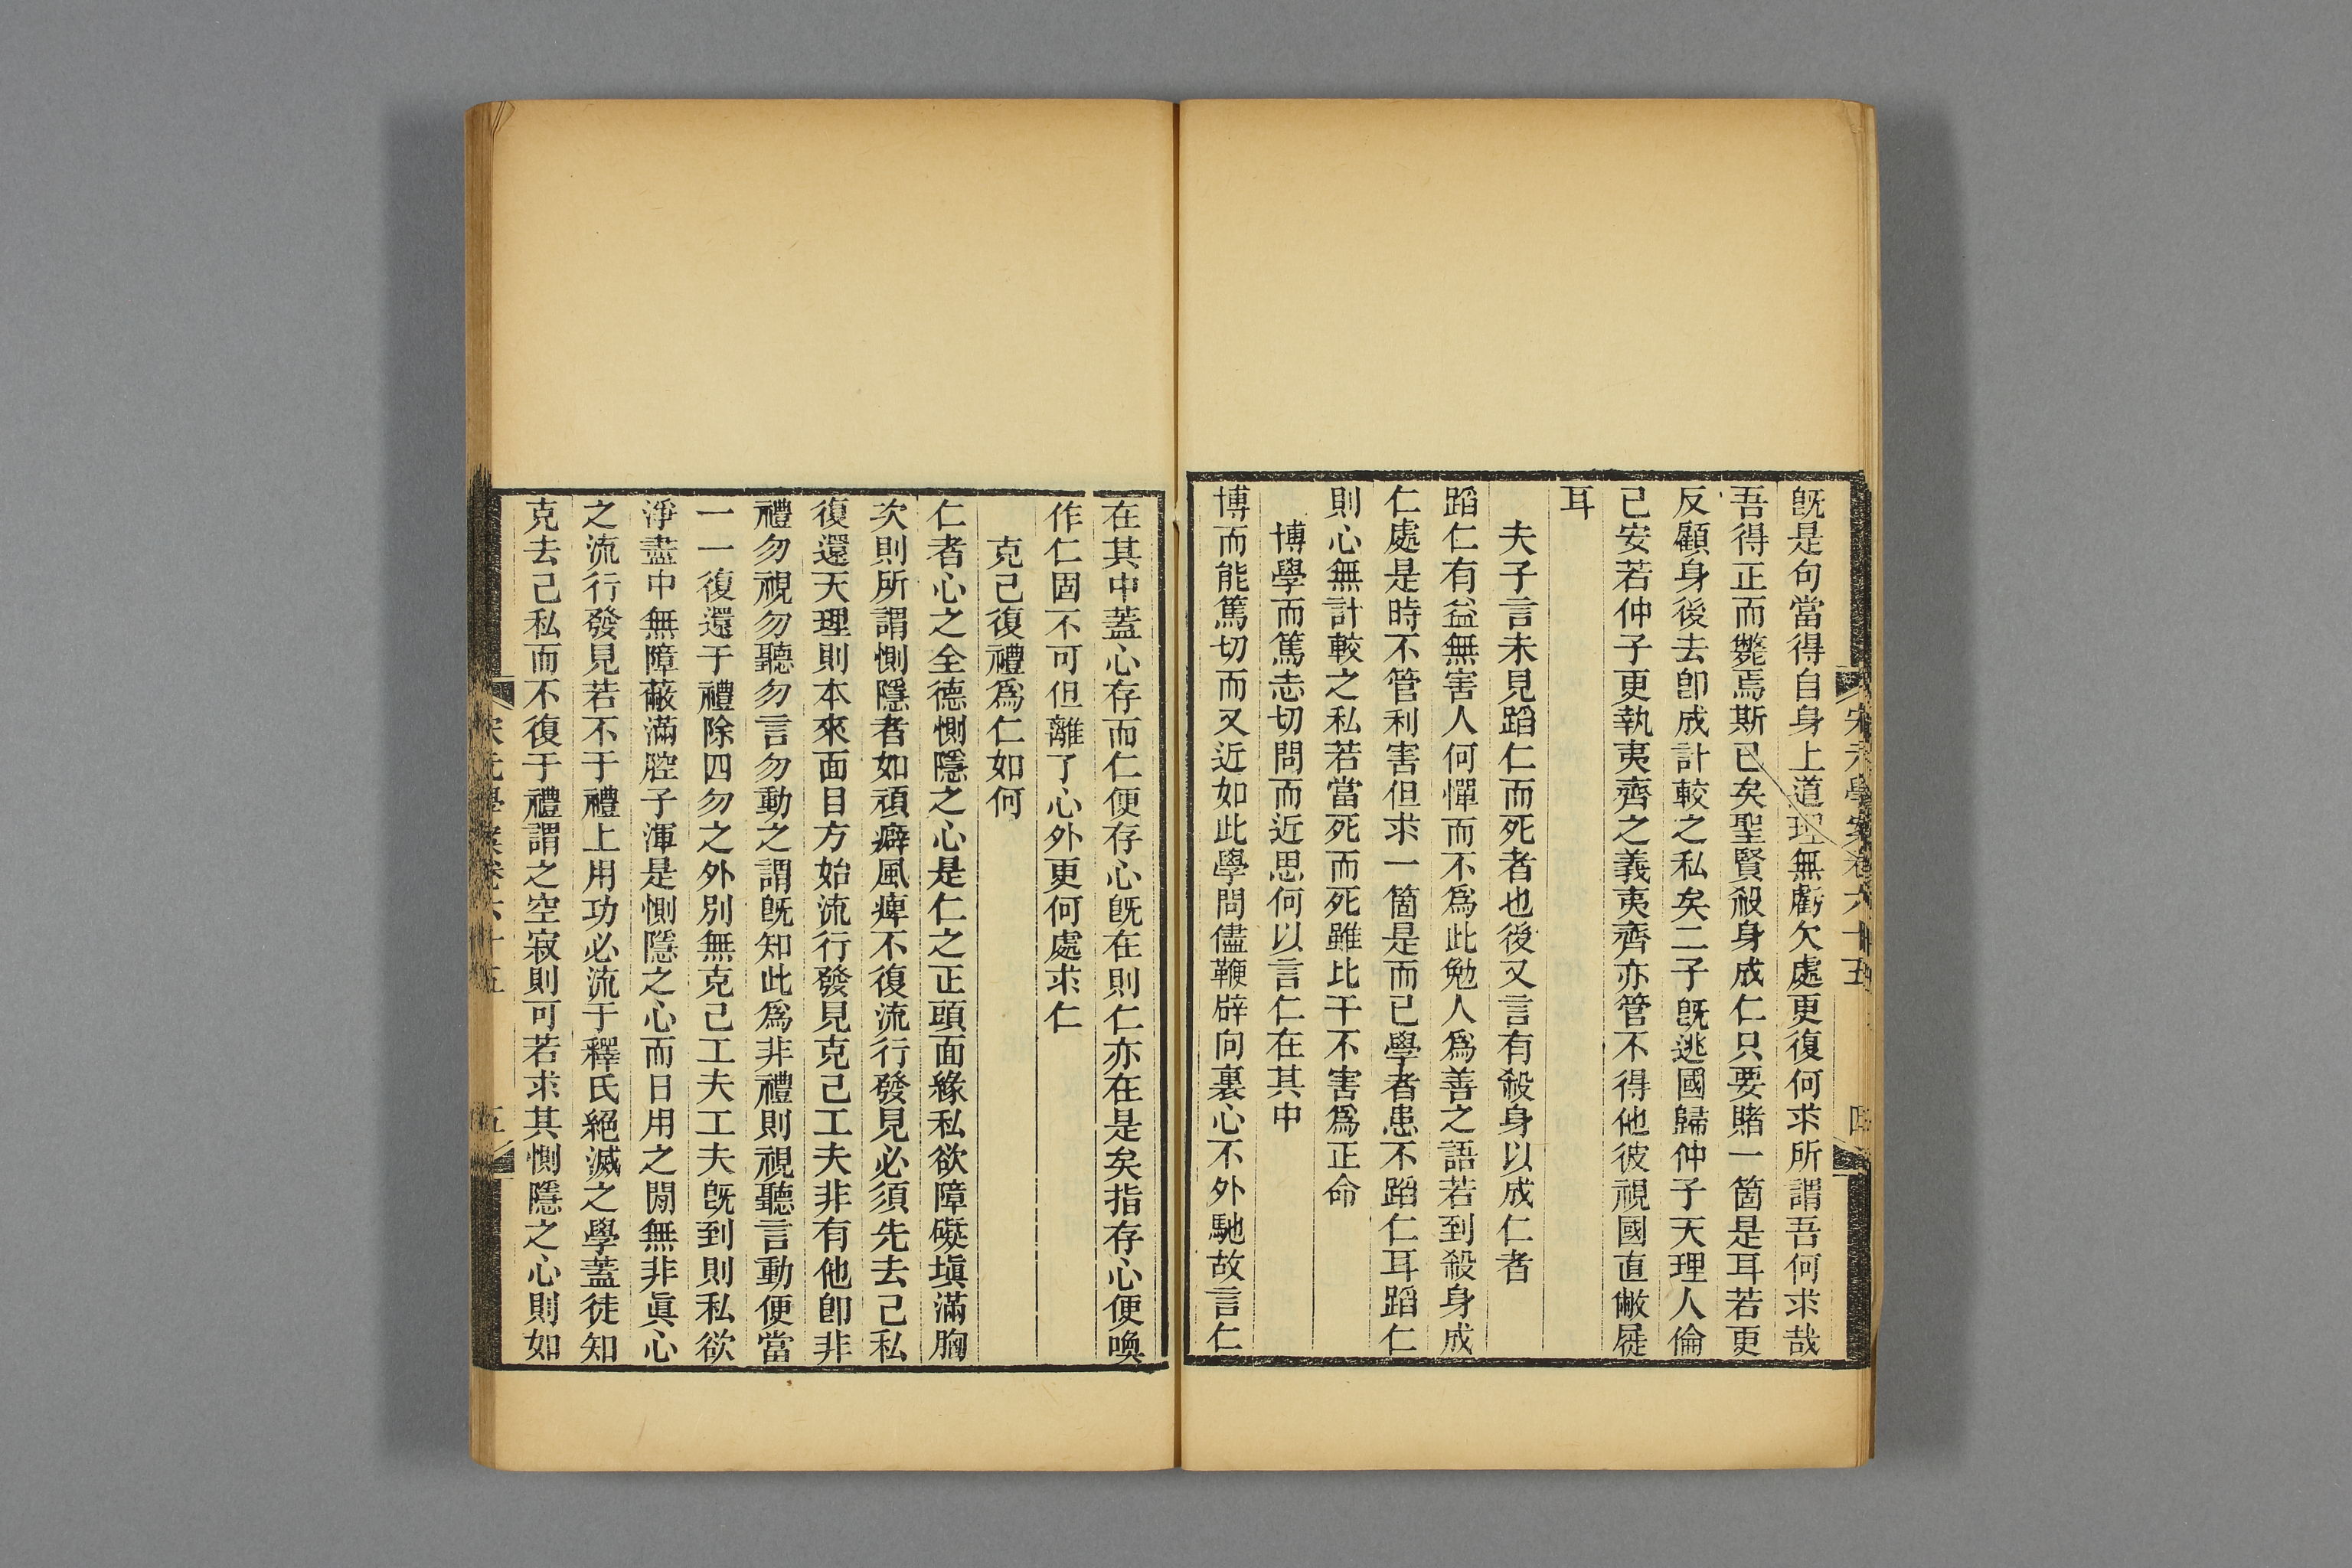 宋元學案卷六十五
四
旣是句當得自身上道理無虧欠處更復何求所謂吾何求哉
吾得正而斃焉斯已矣聖賢殺身成仁只要賭一箇是耳若更
反顧身後去卽成計較之私矣二子旣逃國歸仲子天理人倫
已安若仲子更執夷齊之義夷齊亦管不得他彼視國直敝屣
耳
夫子言未見蹈仁而死者也後又言有殺身以成仁者
蹈仁有益無害人何憚而不爲此勉人爲善之語若到殺身成
仁處是時不管利害但求一箇是而已學者患不蹈仁耳蹈仁
則心無計較之私若當死而死雖比干不害爲正命
博學而篤志切問而近思何以言仁在其中
博而能篤切而又近如此學問儘鞭辟向裏心不外馳故言仁
在其中蓋心存而仁便存心旣在則仁亦在是矣指存心便喚
作仁固不可但離了心外更何處求仁
克己復禮爲仁如何
仁者心之全德惻隱之心是仁之正頭面緣私欲障礙塡滿胸
次則所謂惻隱者如頑癖風痺不復流行發見必須先去己私
復還天理則本來面目方始流行發見克己工夫非有他卽非
禮勿視勿聽勿言勿動之謂旣知此爲非禮則視聽言動便當
一一復還于禮除四勿之外別無克己工夫工夫旣到則私欲
淨盡中無障蔽滿腔子渾是惻隱之心而日用之閒無非眞心
之流行發見若不于禮上用功必流于釋氏絕滅之學蓋徒知
克去己私而不復于禮謂之空寂則可若求其惻隱之心則如
宋元學案卷六十五
五